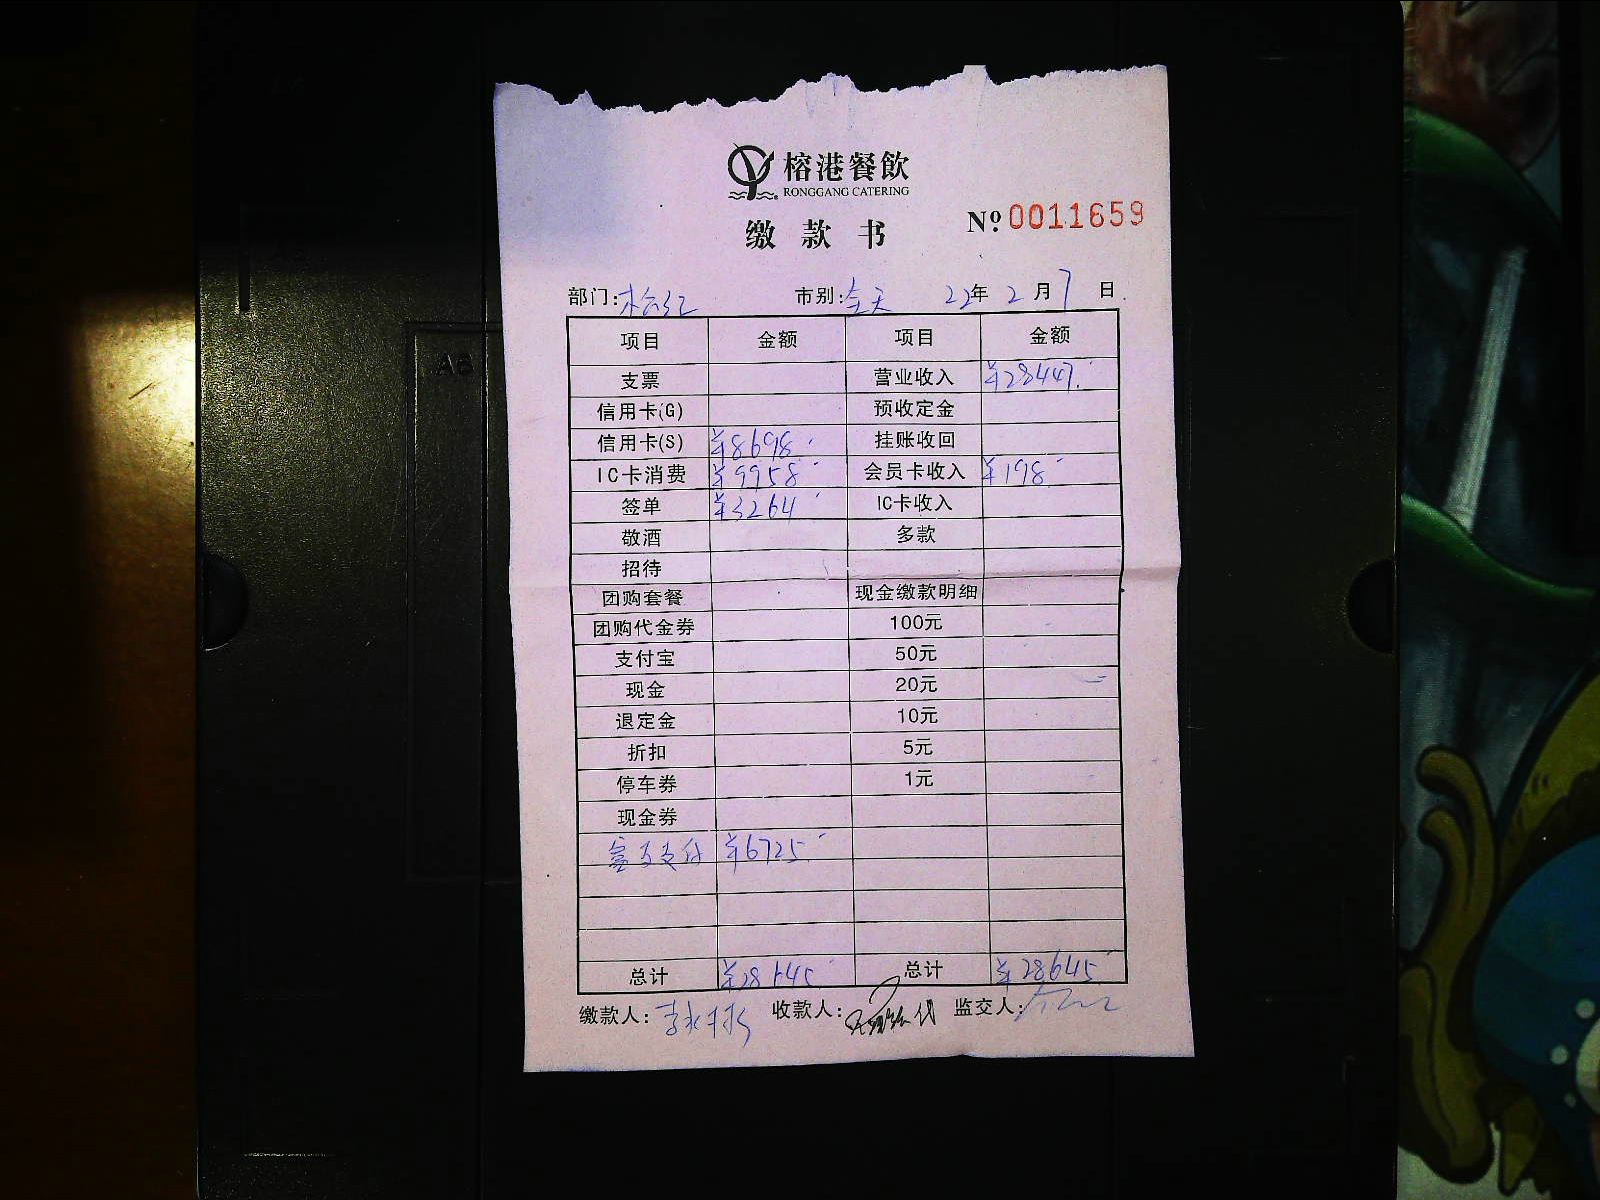 榕港餐飲
RONGGANG CATERING
缴款书
Nº 0011659
部门: 市别:全天 22年2月7日
项目 金额 项目 金额
支票 营业收入 ¥28447.
信用卡(G) 预收定金
信用卡(S) ¥8698 挂账收回
IC卡消费 ¥9958 会员卡收入 ¥198
签单 ¥3264 IC卡收入
敬酒 多款
招待
团购套餐 现金缴款明细
团购代金券 100元
支付宝 50元
现金 20元
退定金 10元
折扣 5元
停车券 1元
现金券
支付 ¥6725
总计 ¥28645 总计 ¥28645
缴款人: 收款人: 监交人:
A6